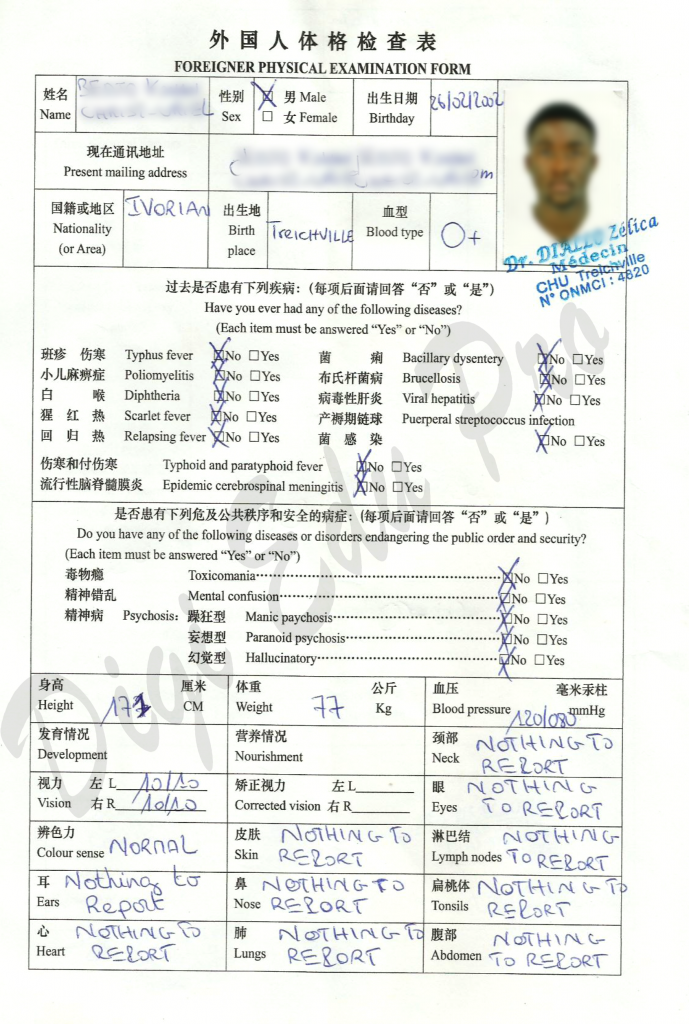 外国人体格检查表
FOREIGNER PHYSICAL EXAMINATION FORM
姓名
Name
性别 男 Male
Sex 女 Female
出生日期
Birthday
26/02/2002
现在通讯地址
Present mailing address
om
国籍或地区
Nationality
(or Area)
IVORIAN
出生地
Birth
place
TREICHVILLE
血型
Blood type
O+
Dr. DIALLO Zélica
Médecin
CHU Treichville
N° ONMCI : 4820
过去是否患有下列疾病：(每项后面请回答“否”或“是”)
Have you ever had any of the following diseases?
(Each item must be answered “Yes” or “No”)
班疹 伤寒 Typhus fever ☒No ☐Yes 菌 痢 Bacillary dysentery ☒No ☐Yes
小儿麻痹症 Poliomyelitis ☒No ☐Yes 布氏杆菌病 Brucellosis ☒No ☐Yes
白 喉 Diphtheria ☒No ☐Yes 病毒性肝炎 Viral hepatitis ☒No ☐Yes
猩 红 热 Scarlet fever ☒No ☐Yes 产褥期链球 Puerperal streptococcus infection
回 归 热 Relapsing fever ☒No ☐Yes 菌 感 染 ☒No ☐Yes
伤寒和付伤寒 Typhoid and paratyphoid fever ☒No ☐Yes
流行性脑脊髓膜炎 Epidemic cerebrospinal meningitis ☒No ☐Yes
是否患有下列危及公共秩序和安全的病症：(每项后面请回答“否”或“是”)
Do you have any of the following diseases or disorders endangering the public order and security?
(Each item must be answered “Yes” or “No”)
毒物瘾 Toxicomania ☒No ☐Yes
精神错乱 Mental confusion ☒No ☐Yes
精神病 Psychosis: 躁狂型 Manic paychosis ☒No ☐Yes
妄想型 Paranoid psychosis ☒No ☐Yes
幻觉型 Hallucinatory ☒No ☐Yes
身高 厘米
Height CM
体重 公斤
Weight 77 Kg
血压 毫米汞柱
Blood pressure 120/080 mmHg
发育情况
Development
营养情况
Nourishment
颈部
Neck
NOTHING TO
REPORT
视力 左 L 10/10
Vision 右 R 10/10
矫正视力 左 L
Corrected vision 右 R
眼
Eyes
NOTHING
TO REPORT
辨色力
Colour sense
NORMAL
皮肤
Skin
NOTHING TO
REPORT
淋巴结
Lymph nodes
NOTHING
TO REPORT
耳
Ears
Nothing to
Report
鼻
Nose
NOTHING TO
REPORT
扁桃体
Tonsils
NOTHING TO
REPORT
心
Heart
NOTHING TO
REPORT
肺
Lungs
NOTHING TO
REPORT
腹部
Abdomen
NOTHING
TO REPORT
Digi Edu Pro